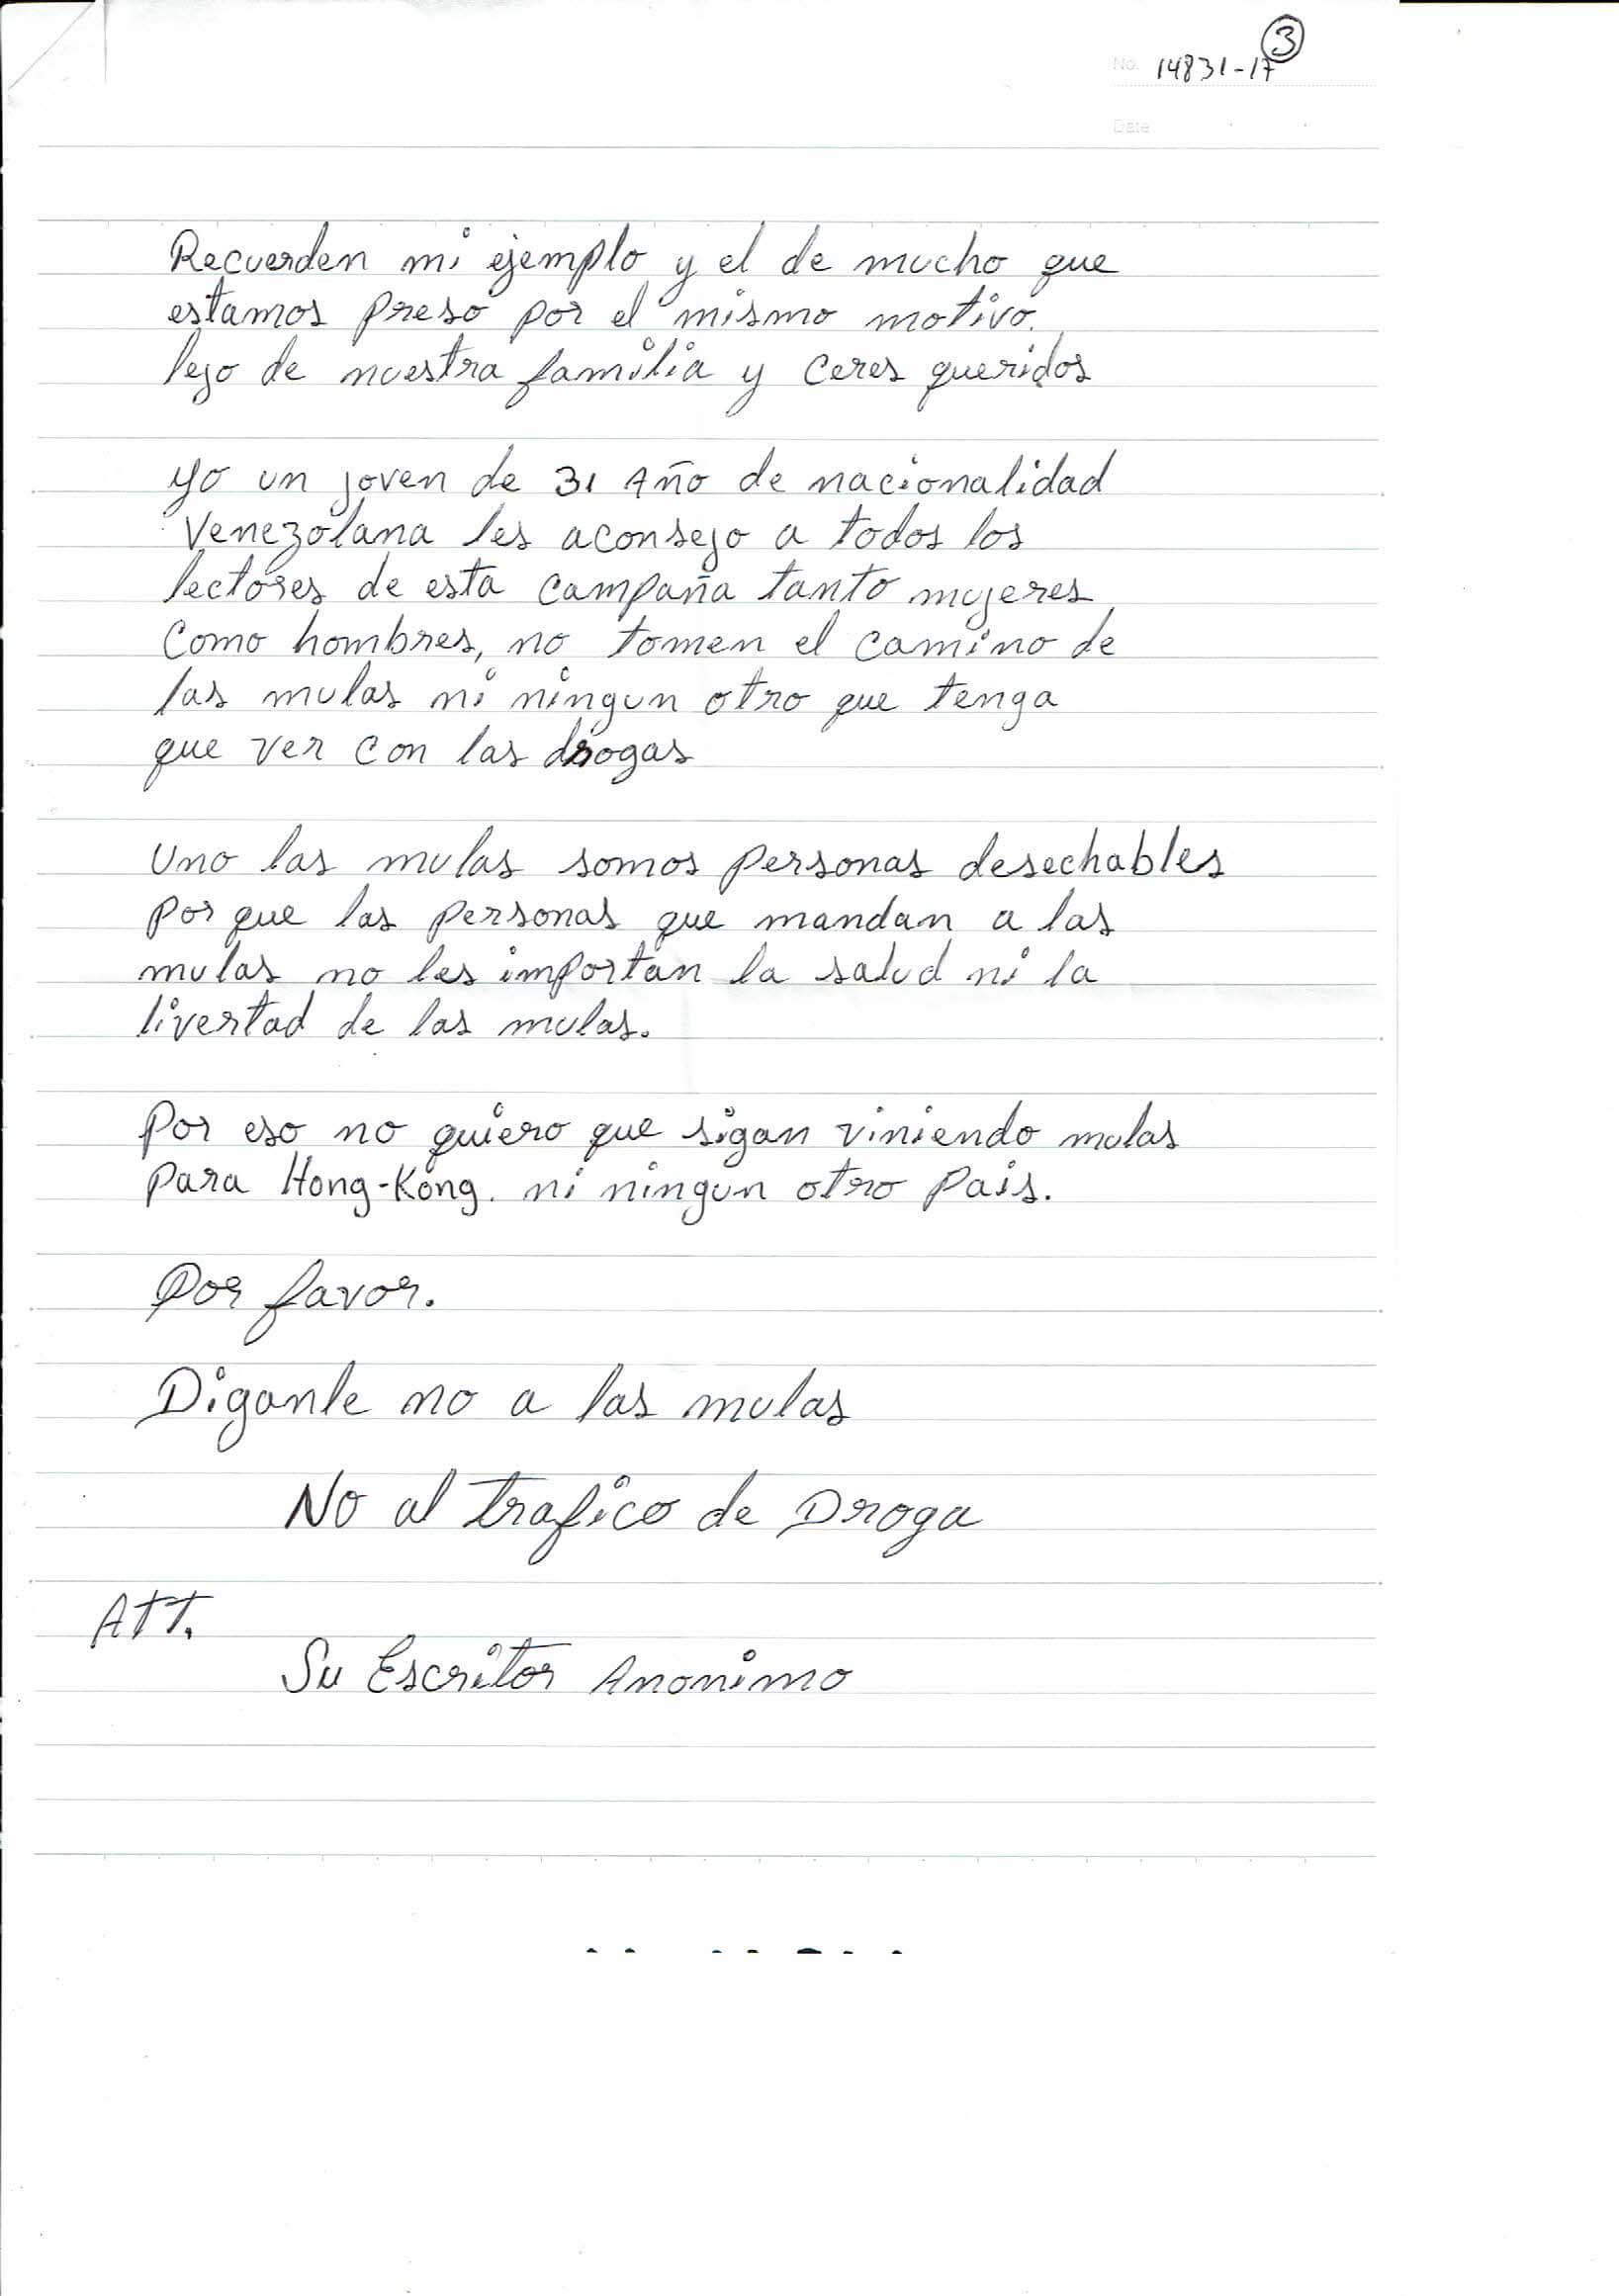 3
No. 14831-17
Date
Recuerden mi ejemplo y el de mucho que
estamos preso por el mismo motivo.
lejo de nuestra familia y ceres queridos
yo un joven de 31 Año de nacionalidad
Venezolana les aconsejo a todos los
lectores de esta campaña tanto mujeres
como hombres, no tomen el camino de
las mulas ni ningun otro que tenga
que ver con las drogas
Uno las mulas somos personas desechables
por que las personas que mandan a las
mulas no les importan la salud ni la
livertad de las mulas.
Por eso no quiero que sigan viniendo mulas
para Hong-Kong. ni ningun otro pais.
Por favor.
Diganle no a las mulas
No al trafico de Droga
ATT.
Su Escritor Anonimo